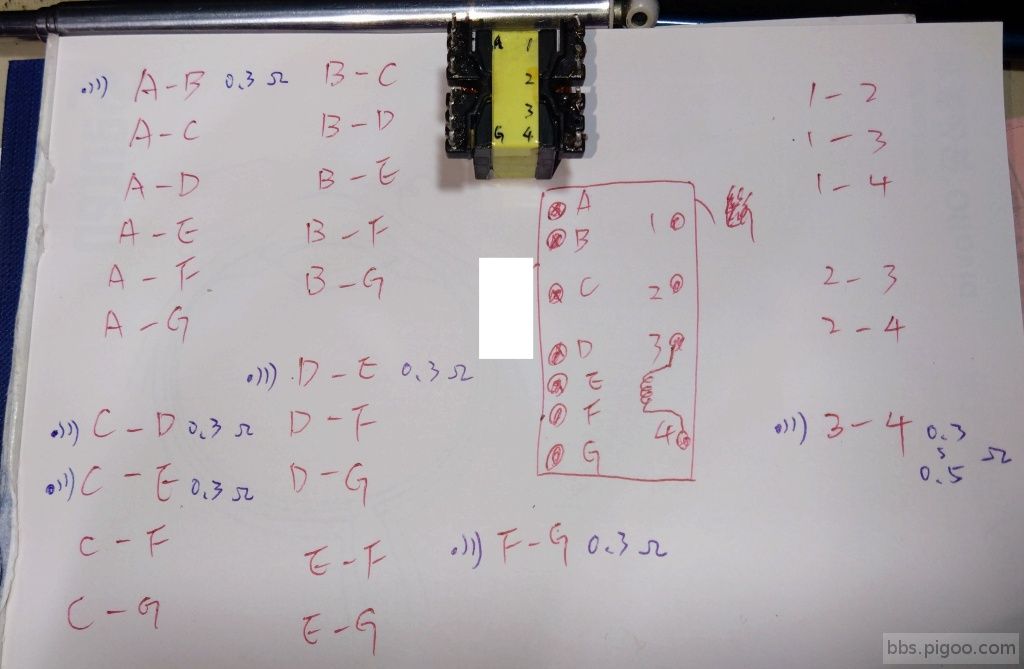 A-B 0.3 Ω
A-C
A-D
A-E
A-F
A-G
B-C
B-D
B-E
B-F
B-G
C-D 0.3 Ω
C-E 0.3 Ω
C-F
C-G
D-E 0.3 Ω
D-F
D-G
E-F
E-G
F-G 0.3 Ω
A 1
2
3
G 4
A
B
C
D
E
F
G
1
2
3
4
1-2
1-3
1-4
2-3
2-4
3-4 0.3
0.5 Ω
bbs.pigoo.com